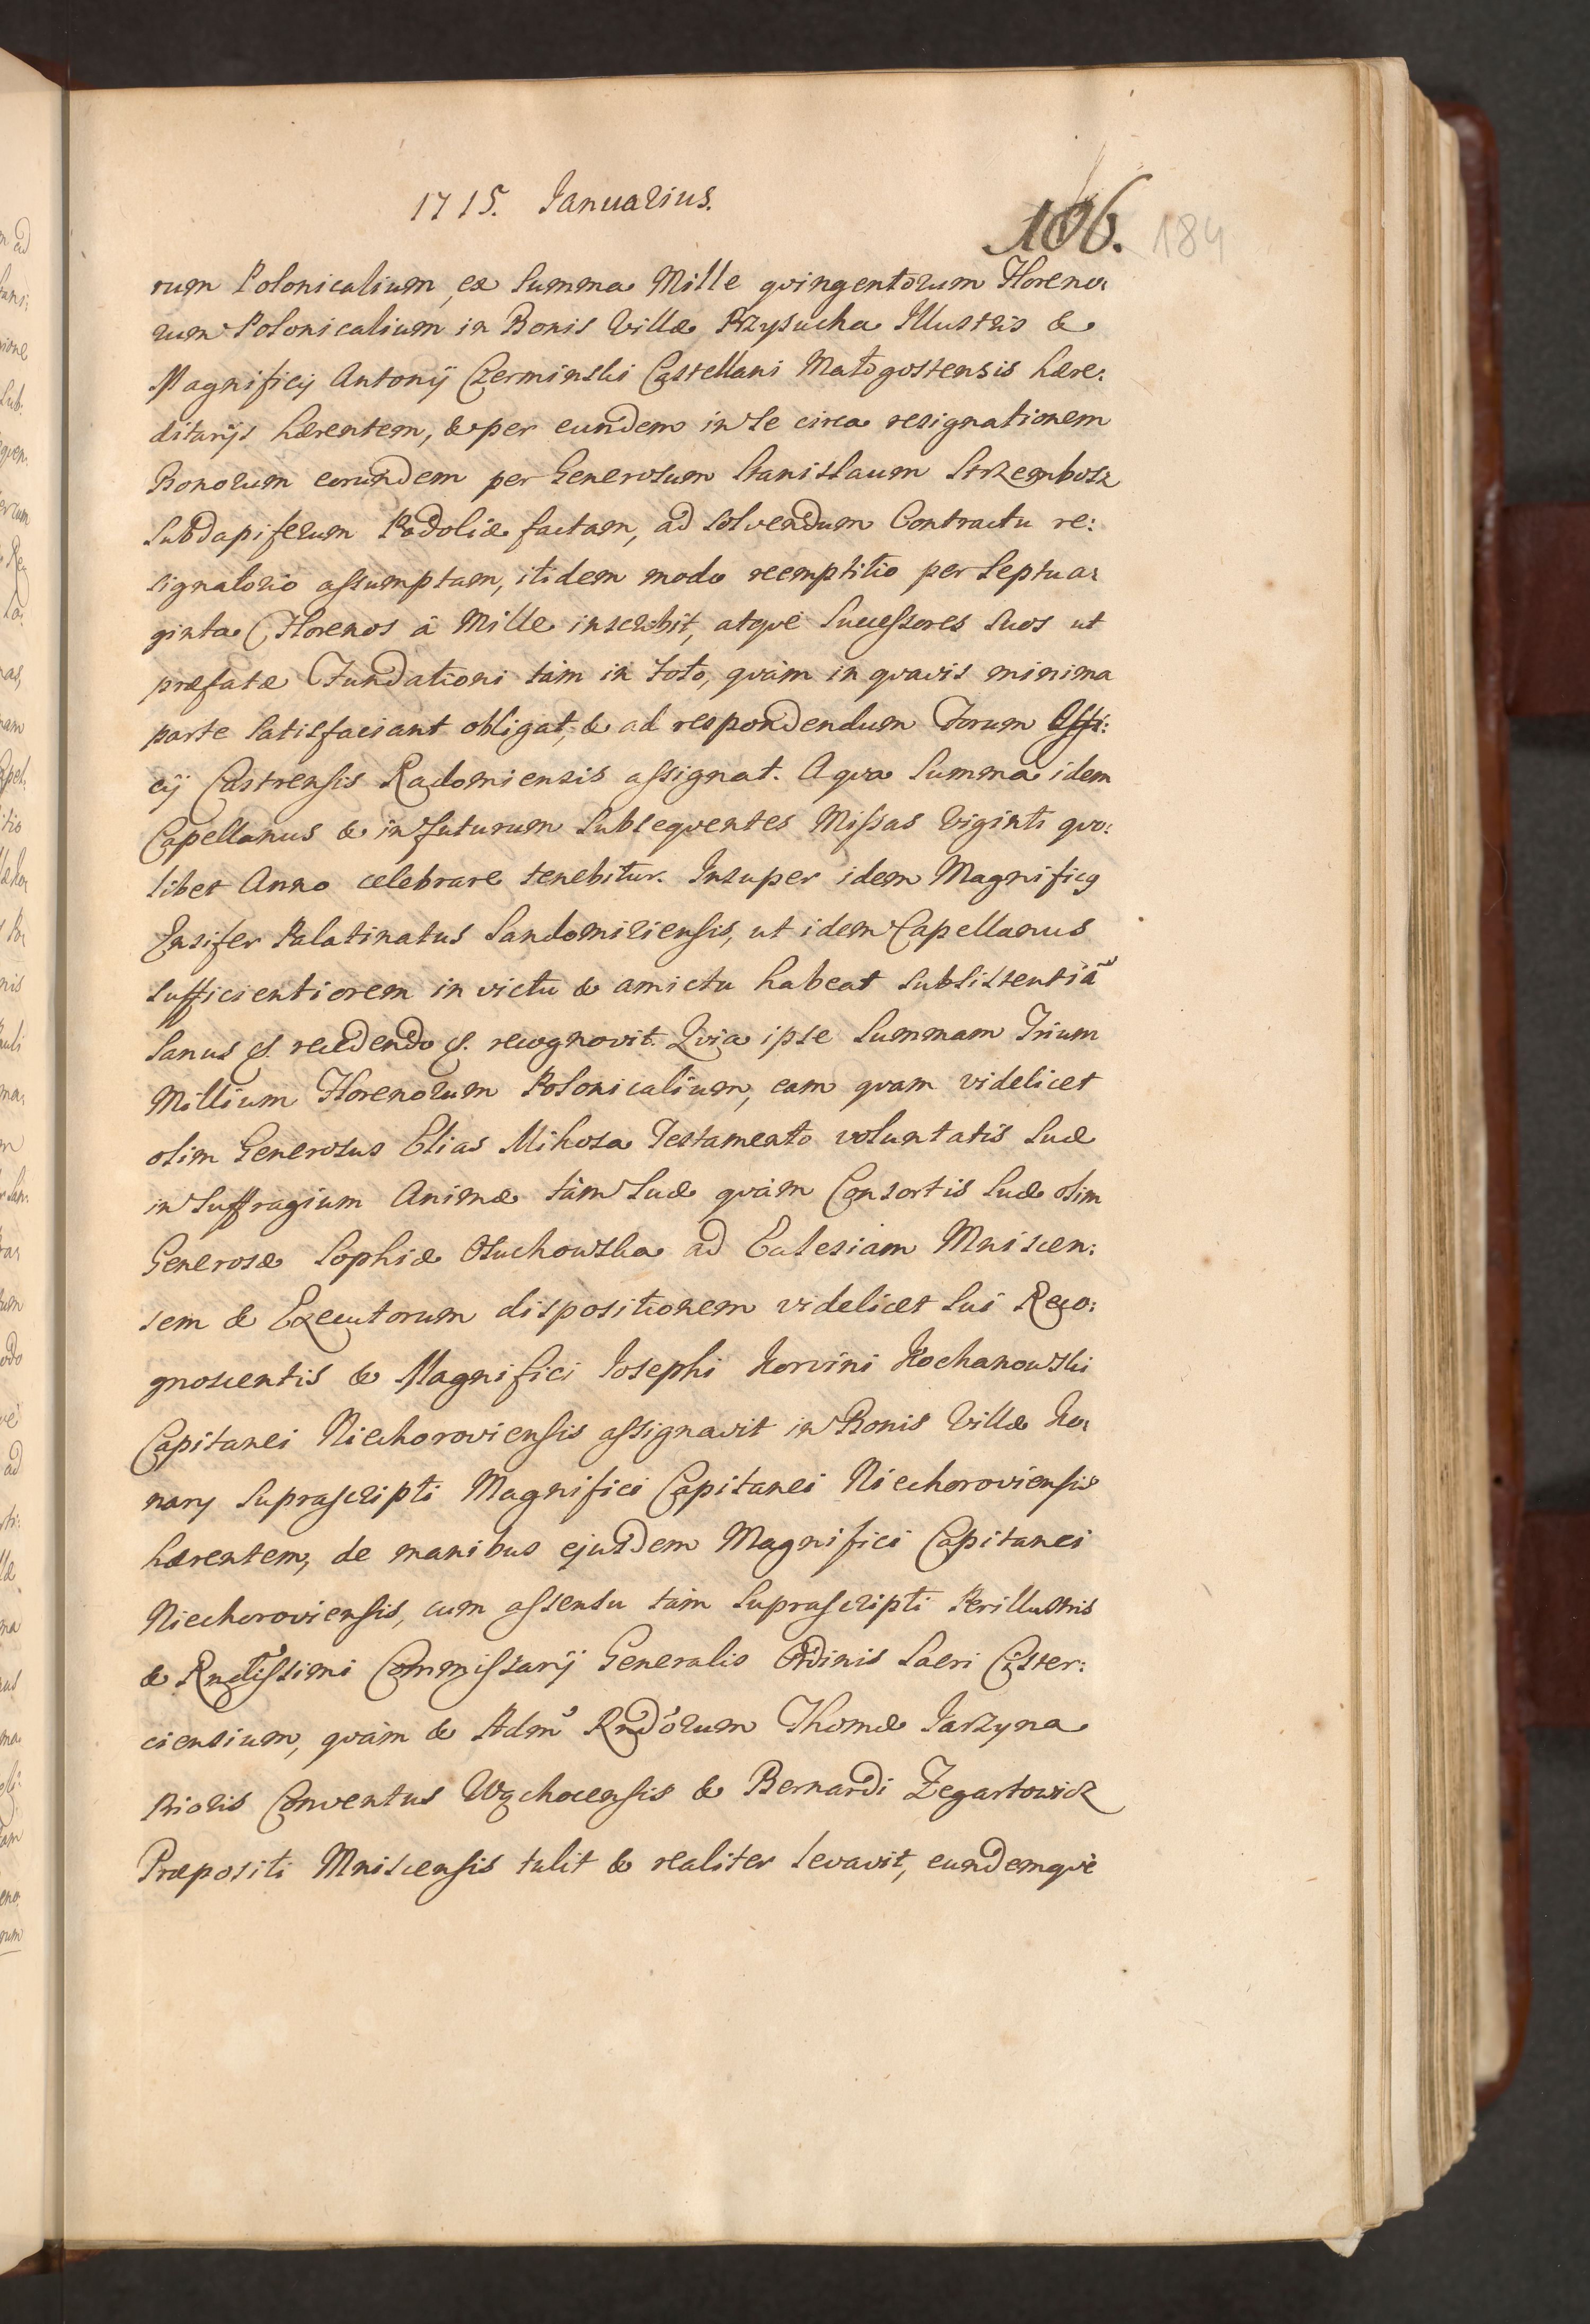 1715. Januarius.
106. 184
rum Polonicalium, ex Summa Mille qvingentorum Floreno:
rum Polonicalium in Bonis Villæ Przysucha Illustris &
Magnificij Antonij Czerminski Castellani Małogostensis hære:
ditarijs hærentem, & per eundem in Se circa resignationem
Bonorum eorundem per Generosum Stanislaum Strzembosz
Subdapiferum Podoliæ factam, ad solvendum Contractu re:
signatorio assumptam, itidem modo reemptitio per Septua:
ginta Florenos â Mille inscribit, atqve Successores Suos ut
præfatæ Fundationi tàm in toto, qvàm in qvavis minima
parte Satisfaciant obligat, & ad respondendum Forum Offi:
cij Castrensis Radomiensis assignat. A qva Summa idem
Capellanus & in futurum Subseqventes Missas Viginti qvo:
libet Anno celebrare tenebitur. Insuper idem Magnificg
Ensifer Palatinatus Sandomiriensis, ut idem Capellanus
Sufficientiorem in victu & amictu habeat Subsistentiã
Sanus &. recedendo &. recognovit. Qvia ipse Summam Trium
Millium Florenorum Polonicalium, eam qvam videlicet
olim Generosus Elias Mikosza Testamento voluntatis Suæ
in Suffragium Animæ tàm Suæ qvàm Consortis Suæ olim
Generosæ Sophiæ Osuchowska ad Eclesiam Mniscen:
sem & Executorum dispositionem videlicet Sui Reco:
gnoscentis & Magnifici Josephi Korvini Kochanowski
Capitanei Niechoroviensis assignavit in Bonis Villæ Ko:
nary Suprascripti Magnifici Capitanei Niechoroviensis
hærentem, de manibus ejusdem Magnifici Capitanei
Niechoroviensis, cum assensu tàm Suprascripti Perillustris
& Rndissimi Commissarij Generalis Ordinis Sacri Cister:
ciensium, qvàm & Adm Rndorum Thomæ Jarzyna
Prioris Conventus Wąchocensis & Bernardi Zegartowicz
Præpositi Mniscensis tulit & realiter levavit, eundemqvè